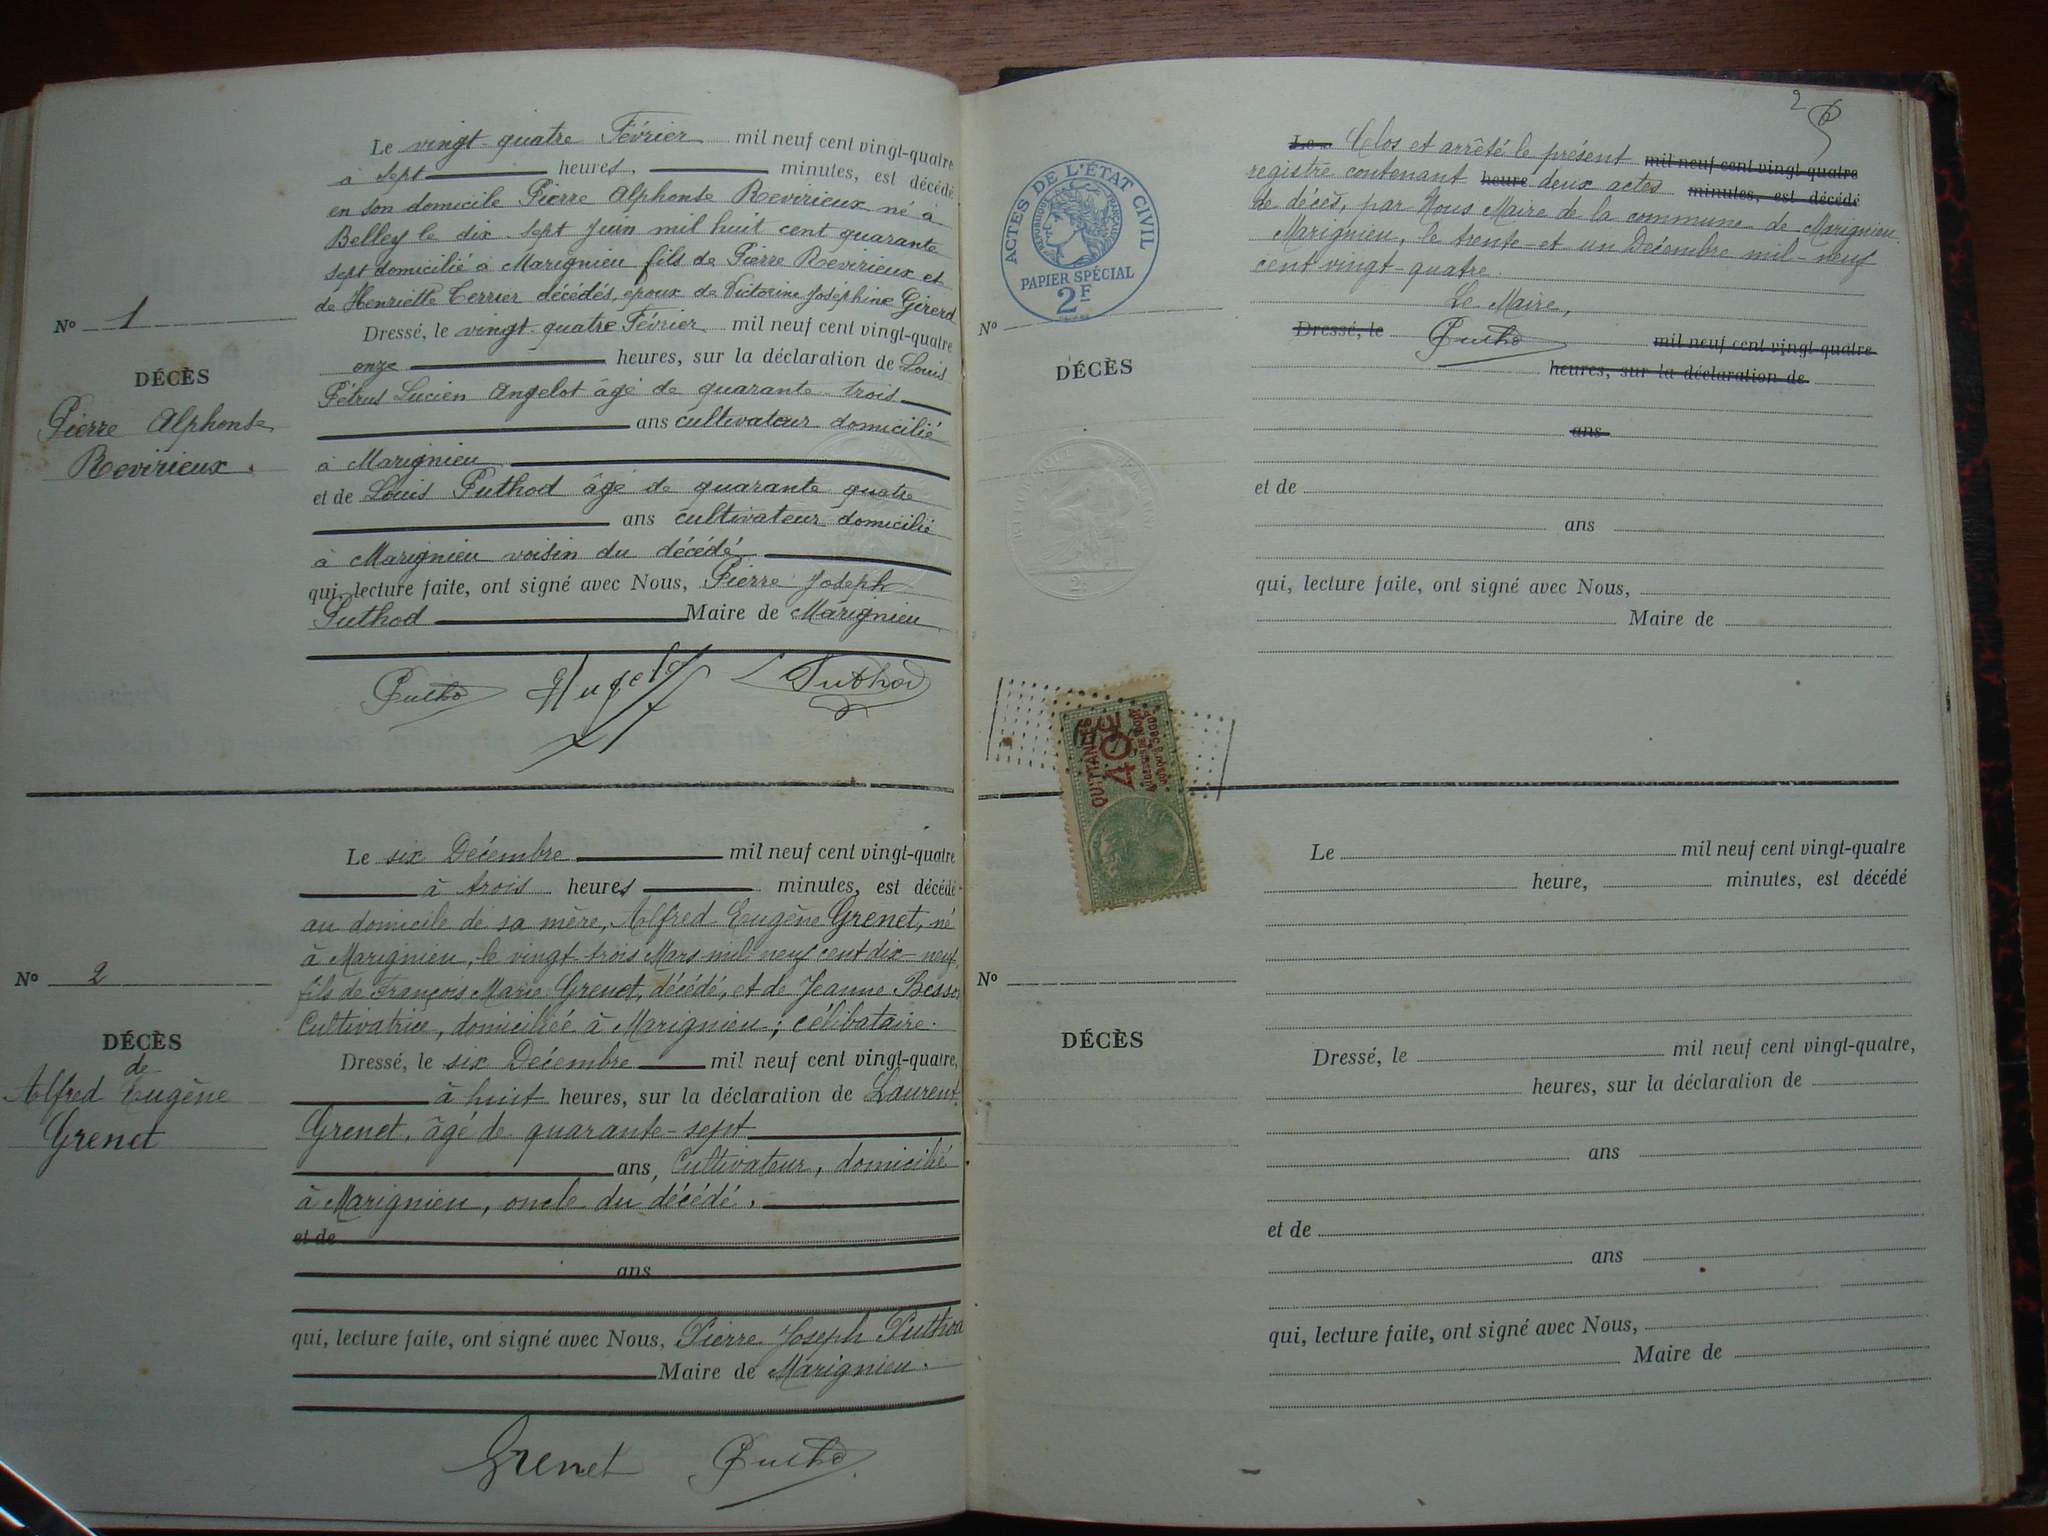 Le vingt-quatre Février mil neuf cent vingt-quatre
à sept heures, minutes, est décédé
en son domicile Pierre Alphonse Revirieux né à
Belley le dix-sept Juin mil huit cent quarante
sept domicilié à Marignieu fils de Pierre Revirieux et
de Henriette Terrier décédés, époux de Victorine Joséphine Girerd
Nº 1
DÉCÈS
Pierre Alphonse
Revirieux.
Dressé, le vingt-quatre Février mil neuf cent vingt-quatre
onze heures, sur la déclaration de Louis
Pétrus Lucien Angelot âgé de quarante-trois
ans cultivateur domicilié
à Marignieu
et de Louis Puthod âgé de quarante quatre
ans cultivateur domicilié
à Marignieu voisin du décédé
qui, lecture faite, ont signé avec Nous, Pierre Joseph
Puthod Maire de Marignieu
Puthod Angelot L Puthod
Le six Décembre mil neuf cent vingt-quatre
à trois heures minutes, est décédé
au domicile de sa mère, Alfred Eugène Grenet, né
à Marignieu, le vingt-trois Mars mil neuf cent dix-neuf,
fils de François Marie Grenet, décédé, et de Jeanne
Cultivatrice, domiciliée à Marignieu; célibataire.
Nº 2
DÉCÈS
de
Alfred Eugène
Grenet
Dressé, le six Décembre mil neuf cent vingt-quatre,
à huit heures, sur la déclaration de Laurent
Grenet, âgé de quarante-sept
ans, Cultivateur, domicilié
à Marignieu, oncle du décédé.
et de
ans
qui, lecture faite, ont signé avec Nous, Pierre Joseph Puthod
Maire de Marignieu.
Grenet Puthod
2
ACTES DE L'ÉTAT CIVIL
RÉPUBLIQUE FRANÇAISE
PAPIER SPÉCIAL
2F
Le Clos et arrêté le présent mil neuf cent vingt-quatre
registre contenant heure deux actes minutes, est décédé
de décès, par Nous Maire de la commune de Marignieu.
Marignieu, le trente-et un Décembre mil-neuf
cent vingt-quatre.
Le Maire,
Nº
DÉCÈS
Dressé, le Puthod mil neuf cent vingt-quatre
heures, sur la déclaration de
ans
et de
ans
qui, lecture faite, ont signé avec Nous,
Maire de
QUITTANCES
40
Le mil neuf cent vingt-quatre
heure, minutes, est décédé
Nº
DÉCÈS
Dressé, le mil neuf cent vingt-quatre,
heures, sur la déclaration de
ans
et de
ans
qui, lecture faite, ont signé avec Nous,
Maire de